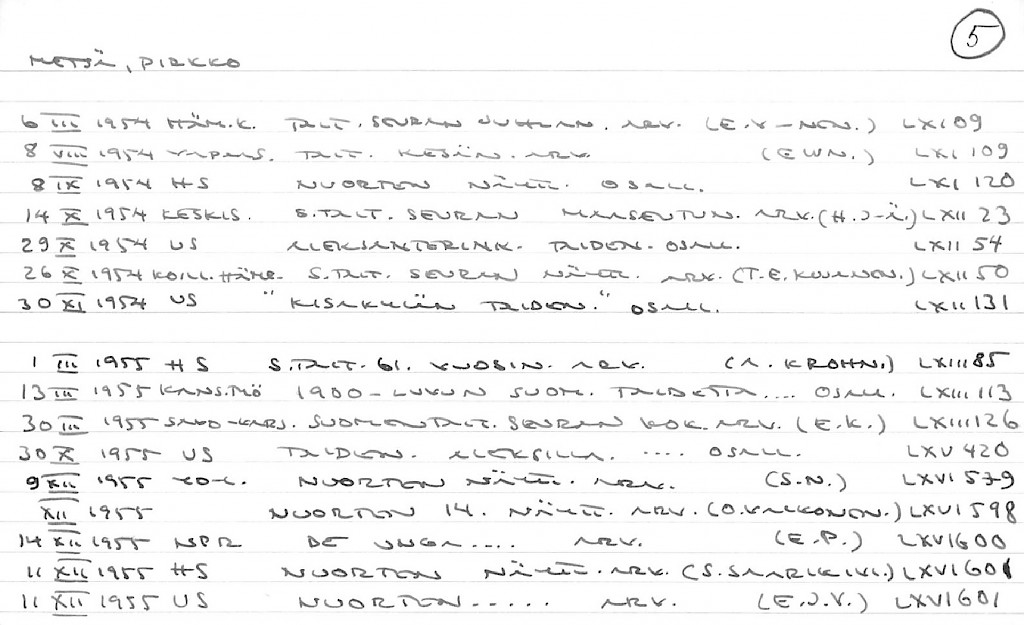 5
METSÄ, PIRKKO
6 III 1954 HÄM.K. TAIT. SEURAN JUHLAN. ARV. (E.V-NEN.) LXI 09
8 VIII 1954 VAPAUS. TAIT. KESÄN. ARV. (EWN.) LXI 109
8 IX 1954 HS NUORTEN NÄYTT. OSALL. LXI 120
14 X 1954 KESKIS. S.TAIT. SEURAN MAASEUTUN. ARV. (H.J-Ä.) LXII 23
29 X 1954 US ALEKSANTERINK. TAIDEN. OSALL. LXII 54
26 X 1954 KOILL.HÄME. S.TAIT. SEURAN NÄYTT. ARV. (T.E.) LXII 50
30 XI 1954 US "KISAKYLÄN TAIDEN." OSALL. LXII 131
1 III 1955 HS S.TAIT. 61. VUOSIN. ARV. (A. KROHN.) LXIII 85
13 III 1955 KANS.TYÖ 1900-LUVUN SUOM. TAIDETTA.... OSALL. LXIII 113
30 III 1955 SAVO-KARJ. SUOMEN TAIT. SEURAN KOK. ARV. (E.K.) LXIII 126
30 X 1955 US TAIDEN. ALEKSILLA. .... OSALL. LXV 420
9 XII 1955 NUORTEN NÄYTT. ARV. (S.N.) LXVI 579
XII 1955 NUORTEN 14. NÄYTT. ARV. (O.VALKONEN.) LXVI 598
14 XII 1955 NPR DE UNGA.... ARV. (E.P.) LXVI 600
11 XII 1955 HS NUORTEN NÄYTT. ARV. (S.SAARIKIVI.) LXVI 601
11 XII 1955 US NUORTEN..... ARV. (E.J.V.) LXVI 601